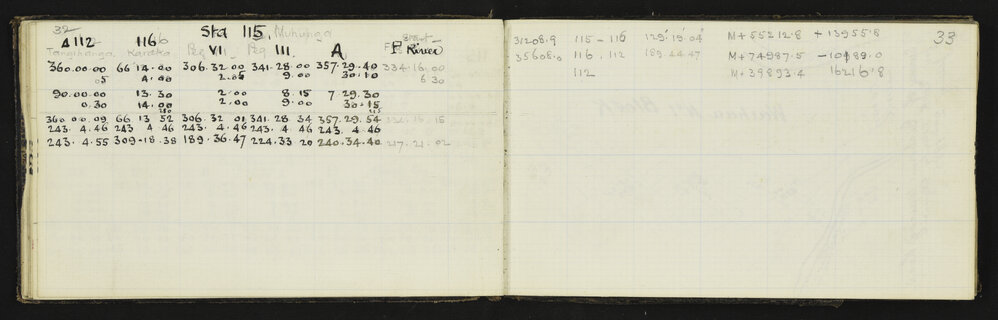 32
Sta 115. Muhunga
Δ112 116 Peg VI Peg III A P River
Tangihanga Karaka
360.00.00 66 14.00 306.32.00 341.28.00 357.29.40 334.16.00
05 4.00 2.05 9.00 30.10 6 30
90.00.00 13.30 2.00 8.15 7.29.30
0.30 14.00 2.00 9.00 30.15
360 00.09 66 13 52 306.32 01 341.28 34 357.29.54
243.4.46 243 4.46 243.4.46 243.4.46 243.4.46
243.4.55 309.18.38 189.36.47 224.33 20 240.34.40 217.21.02
33
31208.9 115 - 116 129.19.04 M+55212.8 +13955.8
35608.0 116.112 189.44.47 M+74987.5 -10189.0
112 M+39893.4 16216.8